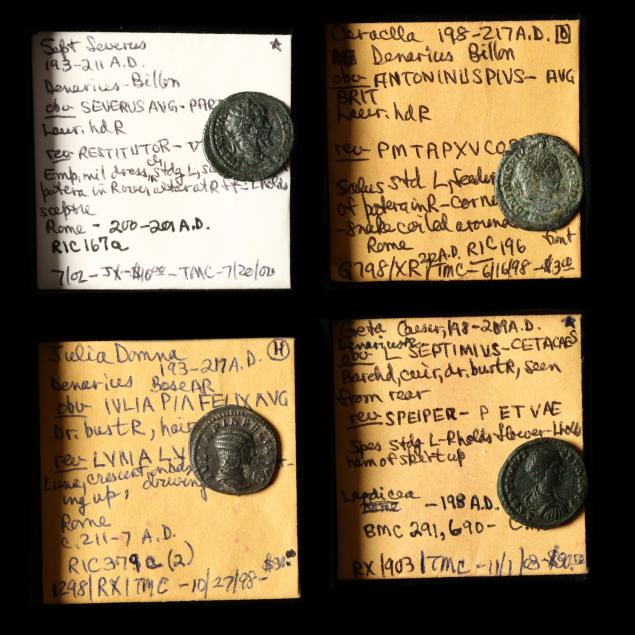 Sept Severus
193-211 A.D.
Denarius-Billon
obv SEVERUS AVG-PAR
Laur. hd R
rev RESTITUTOR-V
Emp, mil dress, stdg L, 
patera in R over altar at R ft-L holds
sceptre
Rome - 200-201 A.D.
RIC 167a
7/02-JX-$10.00-TMC-7/20/02
Caraclla 198-217 A.D. B
Denarius Billon
obv ANTONINUS PIVS- AVG
BRIT
Laur. hd R
rev PMTRPXVCOS
Salus std L, feedin
of patera in R-Corne
-snake coiled around
front
Rome A.D. RIC 196
Q798/XR/TMC-6/16/98-
Julia Domna
193-217 A.D. H
Denarius Base AR
obv IVLIA PIA FELIX AVG
Dr. bust R, hair
rev LVNA LV
Luna, crescent
ing up; driving
Rome
c. 211-7 A.D.
RIC 379c (2)
$30.00
1298/RX/TMC-10/27/98-
Geta Caeser, 198-209 A.D.
Denarius
obv L SEPTIMIVS-GETACAES
Barehd, cuir, dr. bust R, seen
from rear
rev SPEIPER- P ETVAE
Spes stdg L-R holds flower-L holds
hem of skirt up
Laodicea
-198 A.D.
BMC 291, 690-
RX/903/TMC-11/1/03-